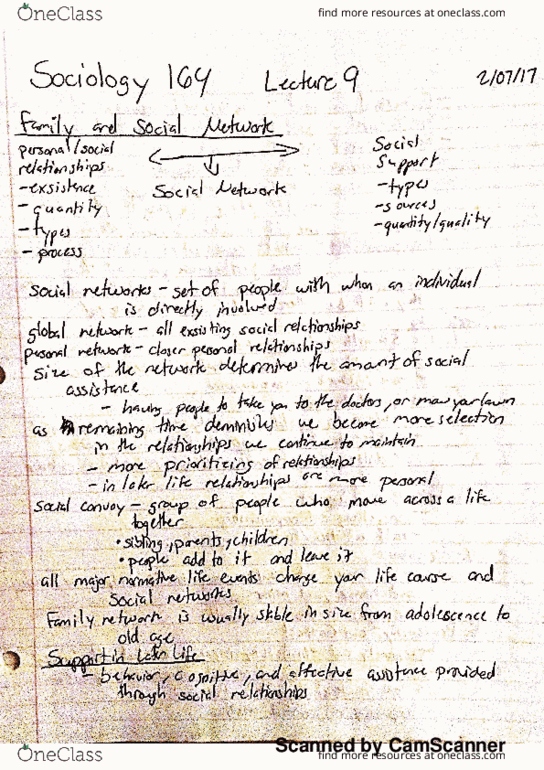 OneClass
find more resources at oneclass.com
Sociology 164 Lecture 9 2/07/17
Family and Social Network
personal/social
relationships
-exsistence
- quantity
- types
- process
Social Network
Social
Support
-types
-sources
-quantity/quality
social networks - set of people with whom an individual
is directly involved
global network - all exsisting social relationships
personal network - closer personal relationships
size of the network determines the amount of social
assistance
- having people to take you to the doctors, or mow your lawn
as remaining time deminishes we become more selection
in the relationships we continue to maintain
- more prioritizing of relationships
- in later life relationships are more personal
Social convoy - group of people who move across a life
together
• sibling, parents, children
• people add to it and leave it
all major normative life events change your life course and
social networks
Family network is usually stable in size from adolescence to
old age
Support in Later Life
- behavior, cognitive, and effective assistence provided
through social relationships
Scanned by CamScanner
OneClass
find more resources at oneclass.com